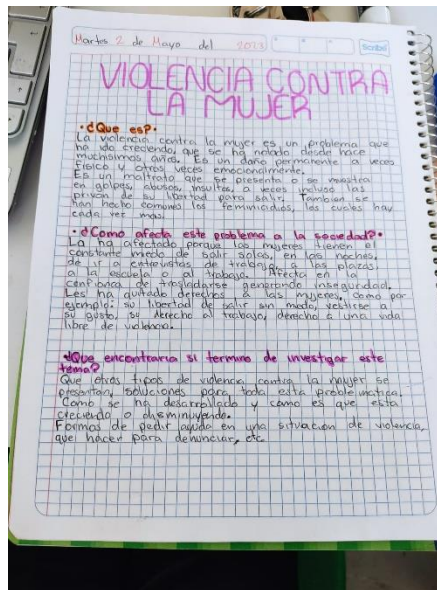 Martes 2 de Mayo del 2023
Scribe
VIOLENCIA CONTRA
LA MUJER
• ¿Que es? •
La violencia contra la mujer es un problema que
ha ido creciendo, que se ha notado desde hace
muchisimos años. Es un daño permanente a veces
fisico y otras veces emocionalmente.
Es un maltrato que se presenta o se muestra
en golpes, abusos, insultos, a veces incluso las
privan de su libertad para salir. Tambien se
han hecho comunes los feminicidios, los cuales hay
cada vez mas.
• ¿Como afecta este problema a la sociedad? •
La ha afectado porque las mujeres tienen el
constante miedo de salir solas, en las noches,
de ir a entrevistas de trabajo, a las plazas,
a la escuela o al trabajo. Afecta en la
confianza de trasladarse generando inseguridad.
Les ha quitado derechos a las mujeres, como por
ejemplo: su libertad de salir sin miedo, vestirse a
su gusto, su derecho al trabajo, derecho a una vida
libre de violencia.
¿Que encontraria si termino de investigar este
tema?
Que otros tipos de violencia contra la mujer se
presentan, soluciones para toda esta problematica.
Como se ha desarrollado y como es que esta
creciendo o disminuyendo.
Formas de pedir ayuda en una situacion de violencia,
que hacer para denunciar, etc.